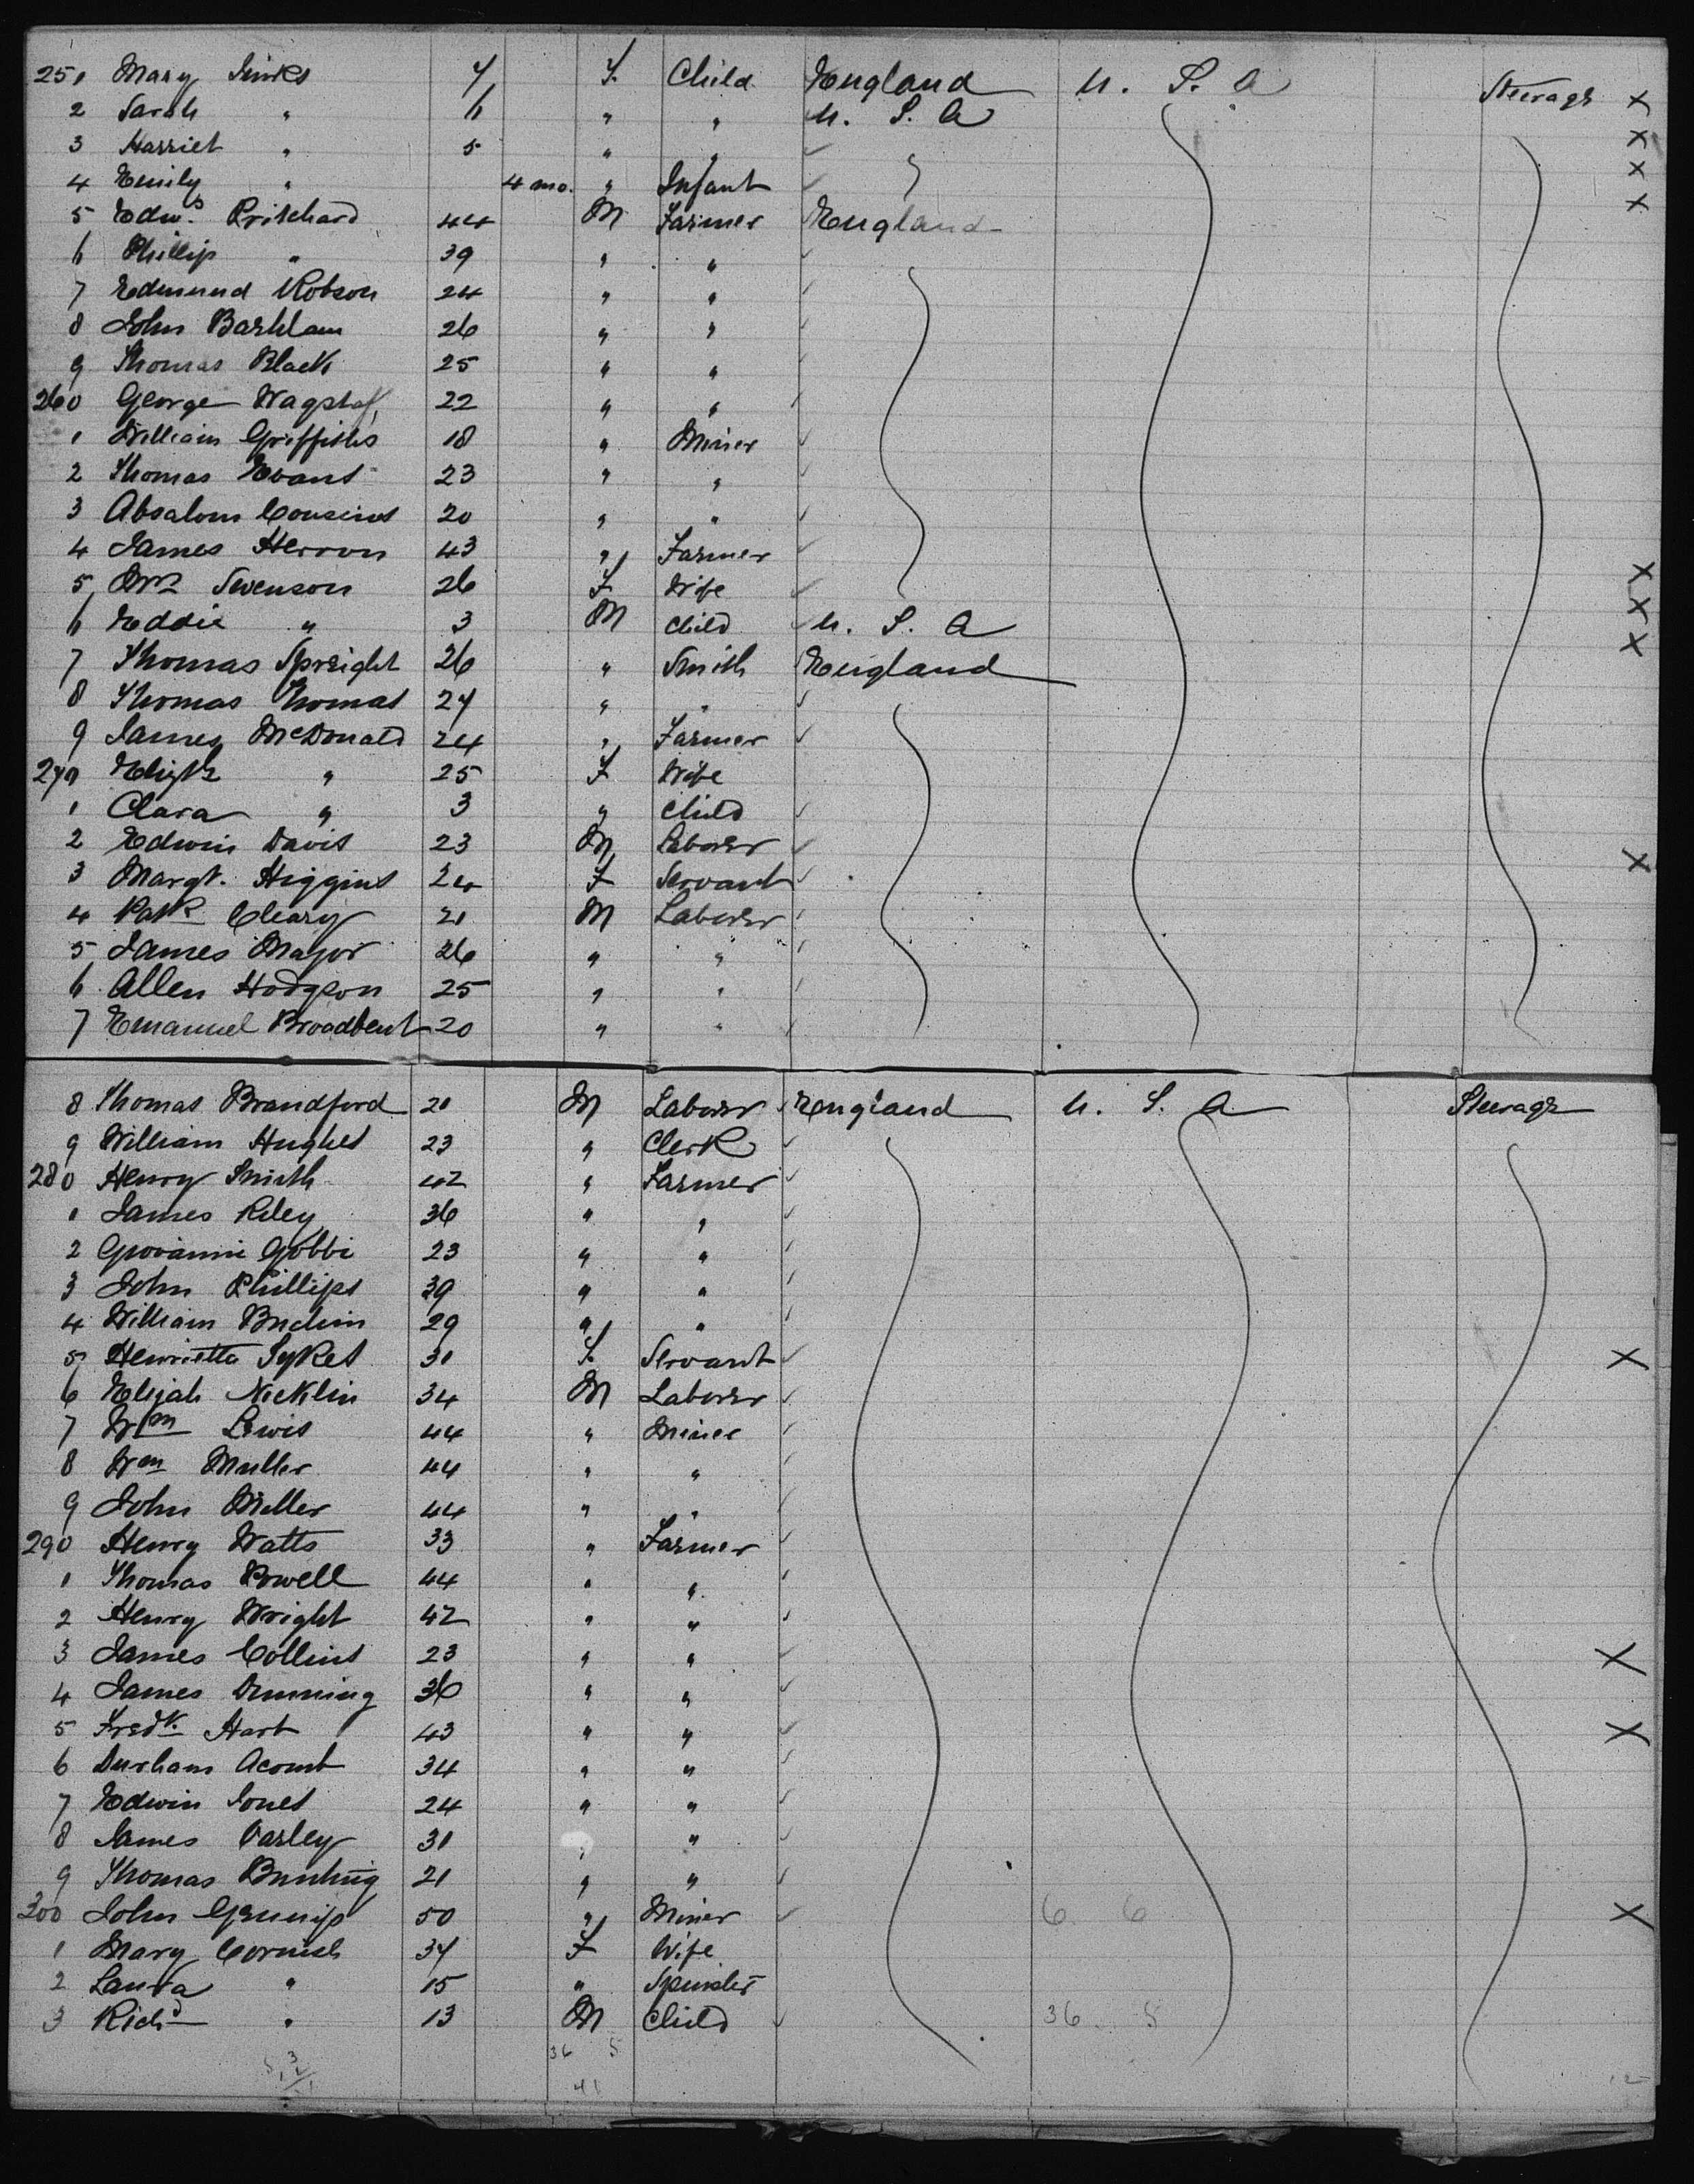 251 Mary Jinks 7 F. Child England U. S. A Steerage X
2 Sarah " 6 " " U. S. A X
3 Harriet " 5 " " ✓ X
4 Emily " 4 mo. " Infant ✓ X
5 Edwd. Pritchard 44 M Farmer England
6 Phillip " 39 " " ✓
7 Edmund Robson 24 " " ✓
8 John Barklam 26 " " ✓
9 Thomas Black 25 " " ✓
260 George Wagstaf 22 " " ✓
1 William Griffiths 18 " Miner ✓
2 Thomas Evans 23 " " ✓
3 Absalom Cousins 20 " " ✓
4 James Herron 43 " Farmer ✓ X
5 Mrs Swenson 26 F Wife ✓ X
6 Eddie " 3 M Child ✓ U. S. A X
7 Thomas Spreight 26 " Smith England
8 Thomas Thomas 27 " " ✓
9 James McDonald 24 " Farmer ✓
270 Elizth " 25 F Wife
1 Clara " 3 " Child ✓
2 Edwin Davis 23 M Laborer ✓ X
3 Margt. Higgins 24 F Servant ✓
4 Patk Cleary 21 M Laborer ✓
5 James Major 26 " " ✓
6 Allen Hodgson 25 " " ✓
7 Emanuel Broadbent 20 " " ✓
8 Thomas Brandford 21 M Laborer ✓ England U. S. A Steerage
9 William Hughes 23 " Clerk ✓
280 Henry Smith 42 " Farmer ✓
1 James Riley 36 " " ✓
2 Giovanni Gobbi 23 " " ✓
3 John Phillips 39 " " ✓
4 William Buchin 29 " " ✓
5 Henrietta Sykes 31 F. Servant ✓ X
6 Elijah Nicklin 34 M Laborer ✓
7 Wm Lewis 44 " Miner ✓
8 Wm Muller 44 " " ✓
9 John Miller 44 " " ✓
290 Henry Watts 33 " Farmer ✓
1 Thomas Powell 44 " " ✓
2 Henry Wright 42 " " ✓
3 James Collins 23 " " ✓ X
4 James Dunning 36 " " ✓
5 Fredk. Hart 43 " " ✓ X
6 Durham Acomb 34 " " ✓
7 Edwin Jones 24 " " ✓
8 James Varley 31 " " ✓
9 Thomas Bunting 21 " " ✓
300 John Grunip 50 " Miner ✓ 6 6 X
1 Mary Cornish 37 F Wife
2 Laura " 15 " Spinster
3 Richd " 13 M Child ✓ 36 5
36 5
41